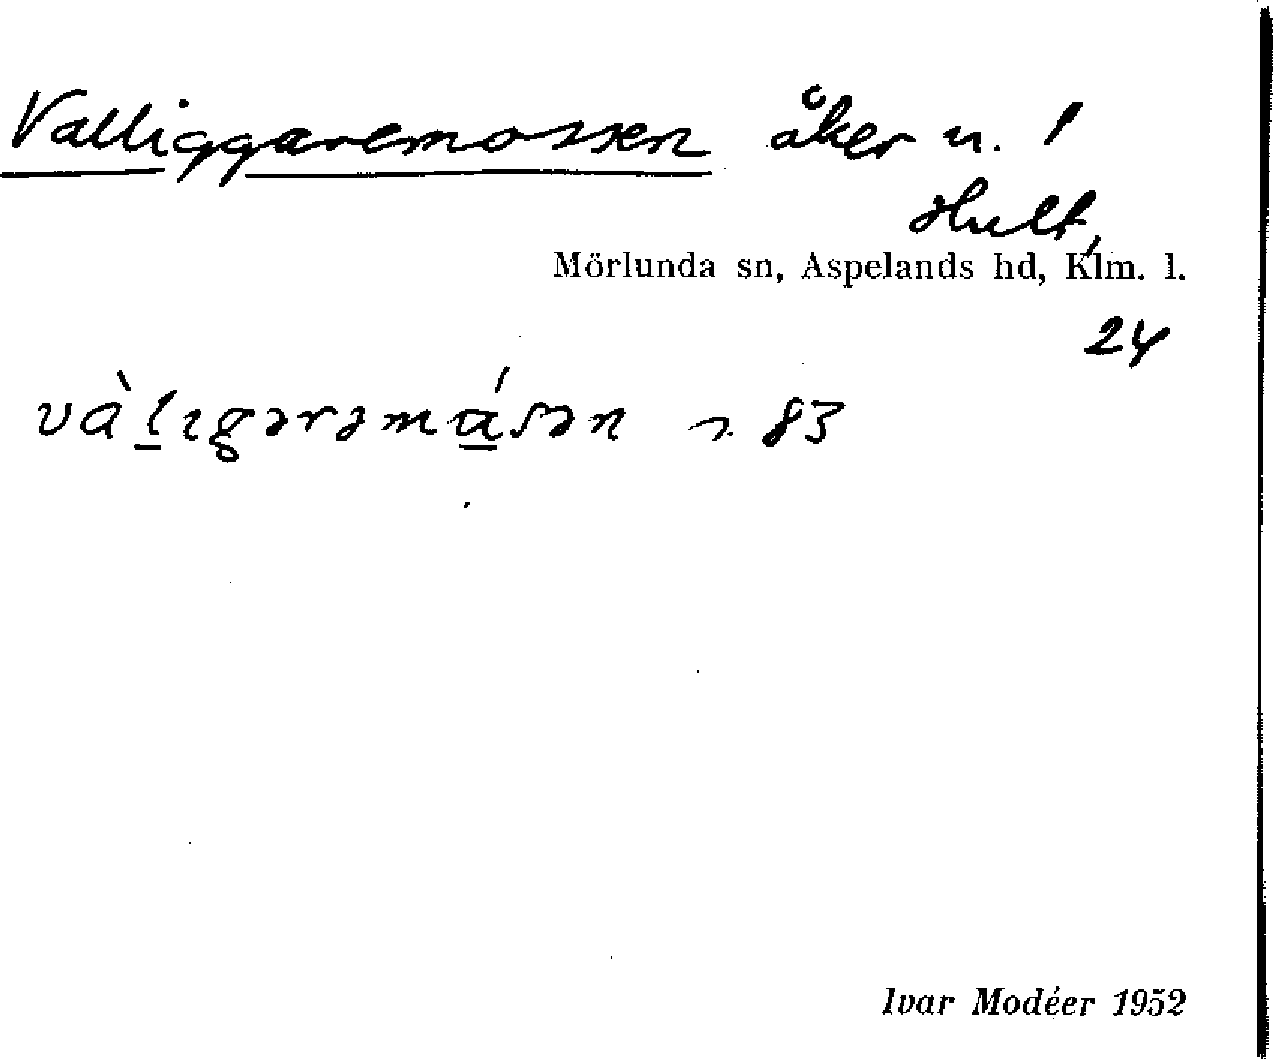 Valliggaremossen åker n. 1
Hult,
Mörlunda sn, Aspelands hd, Klm. l.
24
vàl̠ɪgərəmɑ̠́sən n. 83
Ivar Modéer 1952